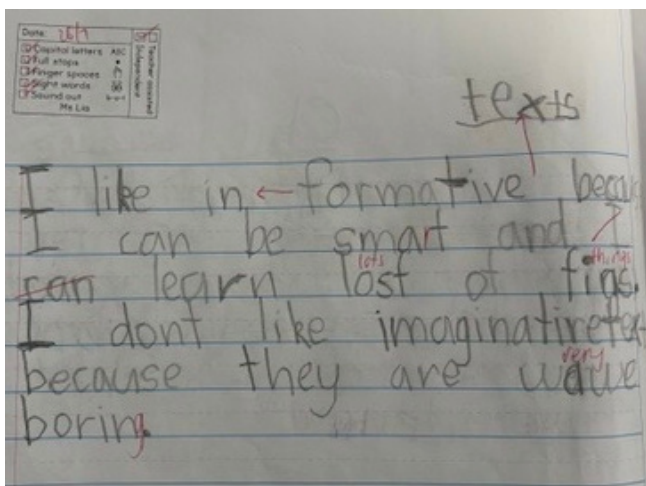 Date: 26/7
Capital letters ABC
Full stops
Finger spaces
Sight words
Sound out
Ms Lia
Teacher assisted
Independent
texts
I like in ← formative becau
I can be smart and I
lots things
can learn lost of figs.
I dont like imaginative tex
very
because they are wawe
boring.